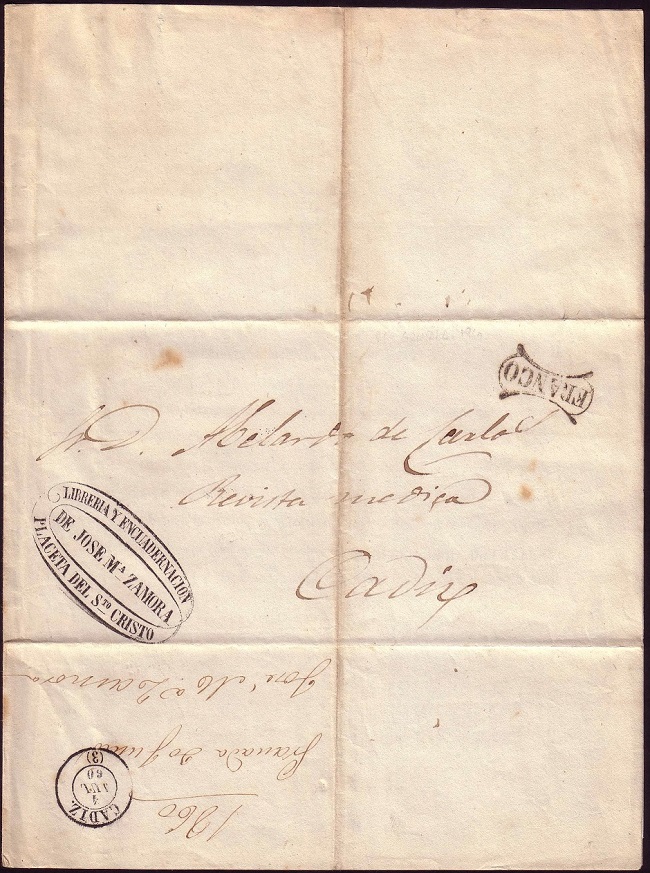 FRANCO
S. D. Abelardo de Carlos
Revista medica
Cadiz
LIBRERIA Y ENCUADERNACION
DE JOSE Mª ZAMORA
PLACETA DEL Sᵀᴼ CRISTO
1860
Granada 30 Junio
José Mª Zamora
CADIZ.
4
JUL.
60
(3)